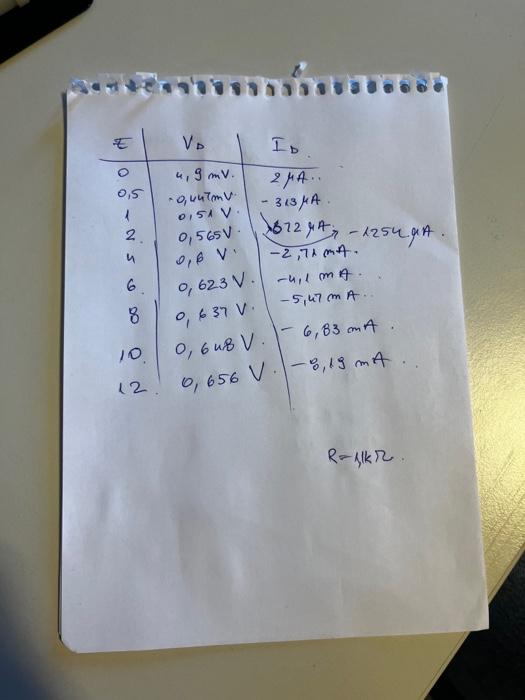 E V_D I_D.
0 4,9 mV. 2 μA..
0,5 -0,447mV. -313 μA.
1 0,51 V. 672 μA.
2. 0,565V. -1254 μA.
4 0,6 V. -2,71 mA.
6. 0,623 V. -4,1 mA.
8 0,637 V. -5,47 mA..
10. 0,648 V. -6,83 mA.
12. 0,656 V. -8,19 mA.
R=1,1kΩ.